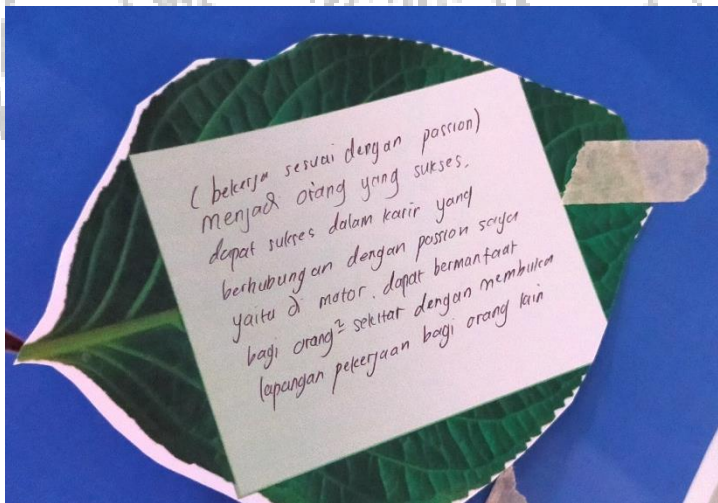 ( bekerja sesuai dengan passion)
menjadi orang yang sukses.
dapat sukses dalam karir yang
berhubungan dengan passion saya
yaitu di motor. dapat bermanfaat
bagi orang² sekitar dengan membuka
lapangan pekerjaan bagi orang lain